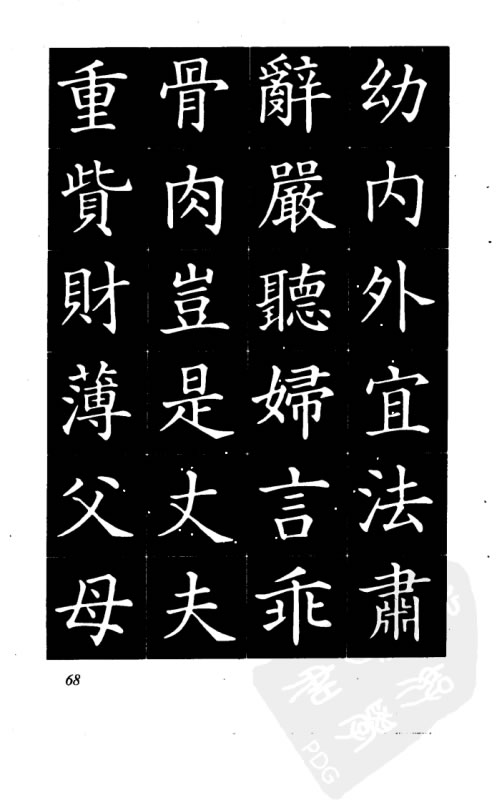 幼内外宜法肅
辭嚴聽婦言乖
骨肉豈是丈夫
重貲財薄父母
68
PDG